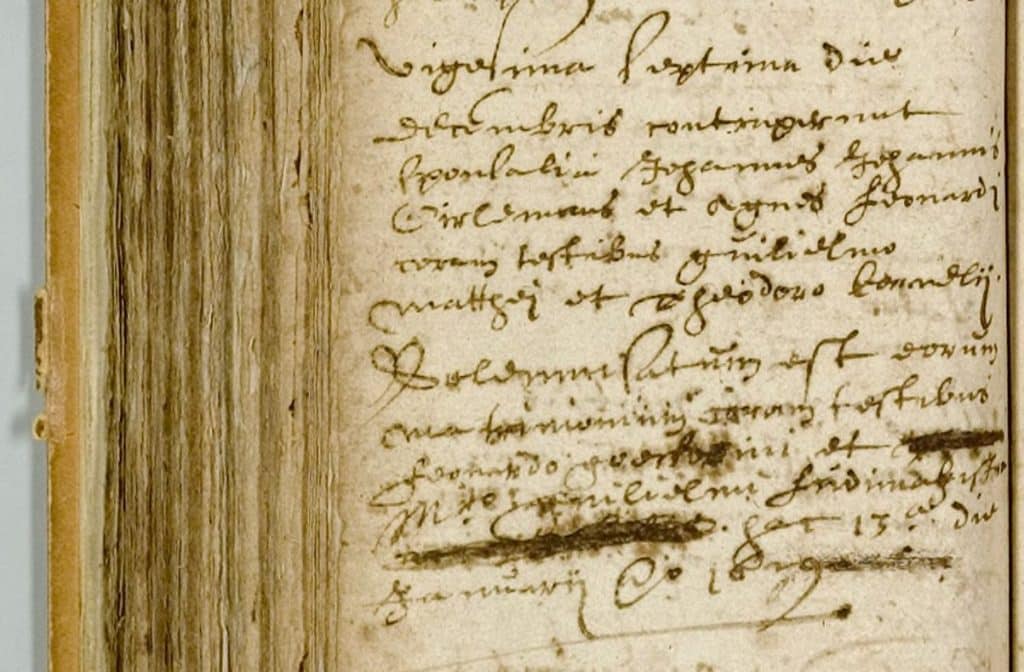 vigesima septima die
decembris contingerunt
sponsalia Johannes Johannis
Cirlemans et Agnes Leonardi
coram testibus guilielmo
matthej et Theodoro Cornelij.
Solemnisatum est eorum
matrimonium coram testibus
Leonardo et
guilielmi ludimagistro
hac 13a die
Januarij Ao